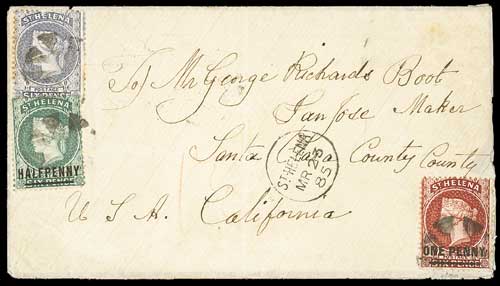 ST HELENA
POSTAGE
SIX PENCE
ST HELENA
HALFPENNY
SIX PENCE
To Mr George Richards Boot
San Jose Maker
Santa County County
U S A. California
ST HELENA
MR 23
85
ST HELENA
ONE PENNY
SIX PENCE